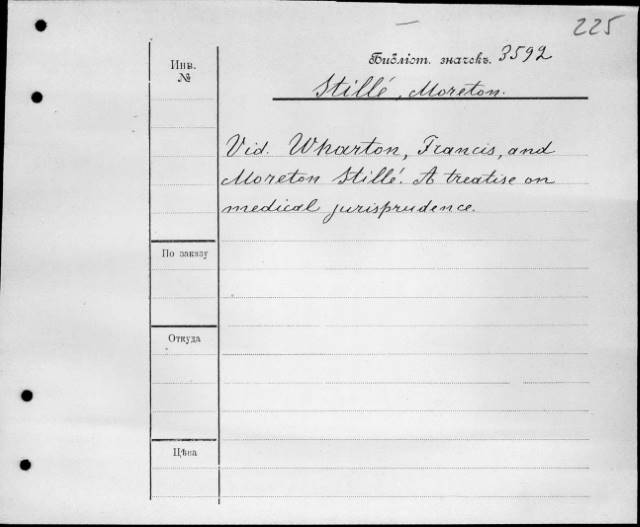 225
Инв.
№
Библіот. значекъ. 3592
Stillé, Moreton.
Vid. Wharton, Francis, and
Moreton Stillé. A treatise on
medical jurisprudence.
По заказу
Откуда
Цѣна